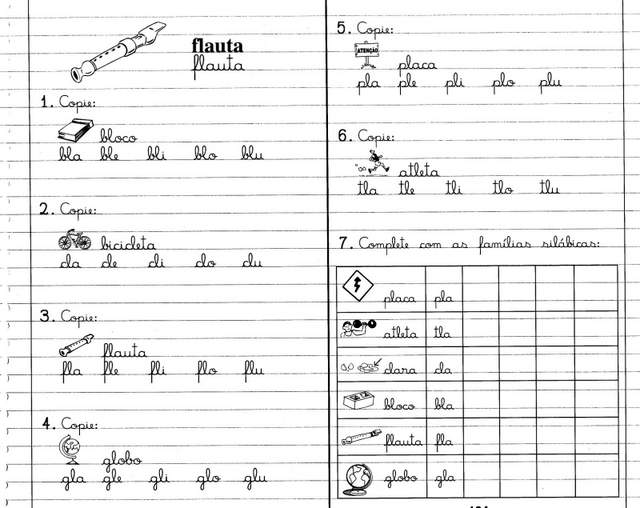 flauta
flauta
1. Copie:
bloco
bla ble bli blo blu
2. Copie:
bicicleta
cla cle cli clo clu
3. Copie:
flauta
fla fle fli flo flu
4. Copie:
globo
gla gle gli glo glu
5. Copie:
ATENÇÃO
placa
pla ple pli plo plu
6. Copie:
atleta
tla tle tli tlo tlu
7. Complete com as famílias silábicas:
placa pla
atleta tla
clara cla
bloco bla
flauta fla
globo gla